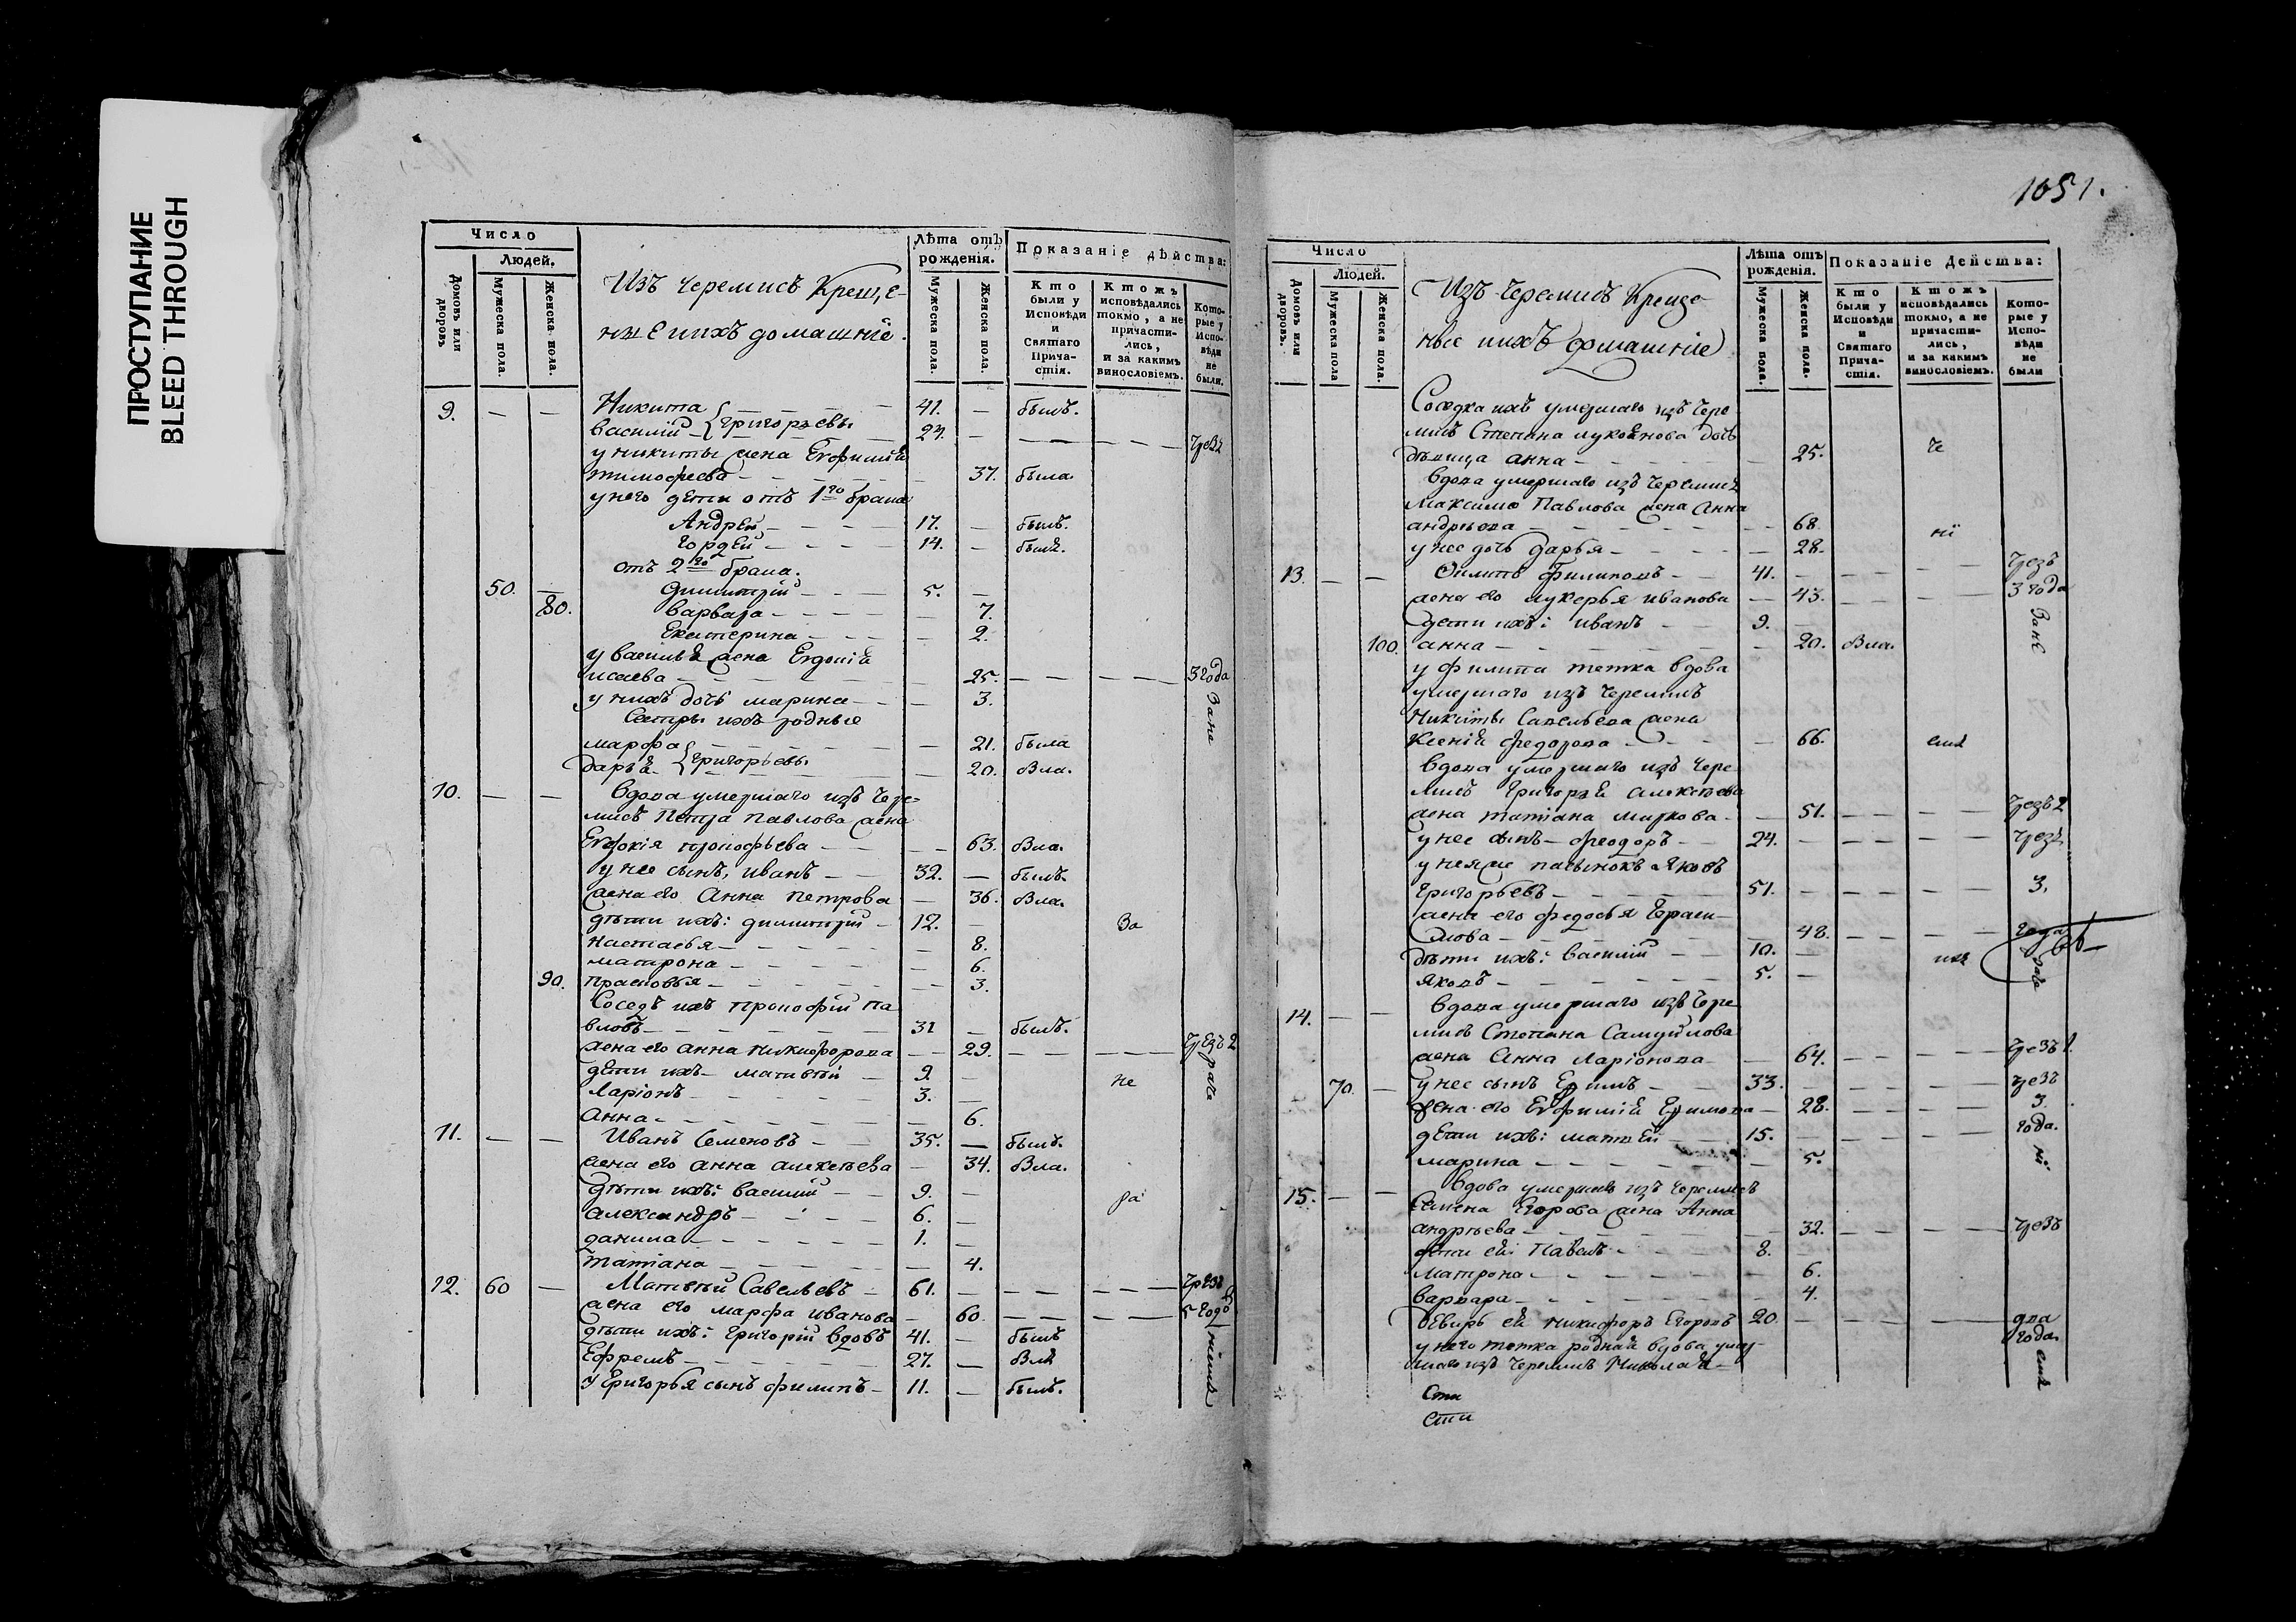 ПРОСТУПАНИЕ
BLEED THROUGH
Число
Людей.
Домовъ или дворовъ
Мужеска пола.
Женска пола.
Изъ Черемисъ Креще-
ные ихъ домашнiе.
Лѣта отъ рожденiя.
Мужеска пола.
Женска пола.
Показанiе дѣйства:
Кто были у Исповѣди и Святаго Причастiя.
Ктожъ исповѣдались токмо, а не причастились, и за какимъ винословiемъ.
Которые у Исповѣди не были.
9. — — Никита — 41. — былъ.
Василiй } Григорьевы — 24. — — — Чрезъ
у никиты жена Евфимiя
тимофеева — 37. была.
у него дети отъ 1го брака
Андрей — 17. — былъ.
Гордей — 14. — былъ.
отъ 2го брака.
50. — Димитрiй — 5. —
80. Варвара — 7.
Екатерина — 2.
у василья жена Евдокiя
исаева — 25. — — 3 года
у нихъ дочь марина — 3.
Сестры ихъ родные
марфа — 21. была
дарья } Григорьевы — 20. Вла.
10. — — Вдова умершаго изъ Чере-
мисъ Петра Павлова жена
Евдокiя прокофьева — 63. Вла.
у нее сынъ, иванъ — 32. — былъ.
жена его Анна петрова — 36. Вла.
дѣти ихъ: димитрiй — 12. — За
настасья — 8.
матрона — 6.
90. прасковья — 3.
Соседъ ихъ прокофiй Па
вловъ — 31 — былъ.
жена его анна никифорова — 29. — — Чрезъ 2
дети ихъ — матвѣй — 9. — не
Ларiонъ — 3. —
Анна — 6.
11. — — Иванъ Семеновъ — 35. — былъ.
жена его анна алексѣева — 34. Вла.
дѣти ихъ: василiй — 9. —
александръ — 6. —
данила — 1. —
татiана — 4.
12. 60 — Матвѣй Савельевъ — 61. — — Чрезъ
жена его марфа иванова — 60. — — 5 годо
дѣти ихъ: григорiй вдовъ 41. — былъ
Ефремъ — 27. — Влъ
у григорья сынъ филипъ — 11. — былъ.
1051.
Число
Людей.
Домовъ или дворовъ.
Мужеска пола
Женска пола.
Изъ Черемисъ Креще-
ные ихъ домашнiе
Лѣта отъ рожденiя.
Мужеска пола.
Женска пола.
Показанiе Действа:
Кто были у Исповѣди и Святаго Причастiя.
Ктожъ исповѣдались токмо, а не причастились, и за какимъ винословiемъ.
Которые у Исповѣди не были
Соседка ихъ умершаго изъ Чере
мисъ Степана лукоянова дочь
дѣвица анна — 25. Че
вдова умершаго изъ Черемисъ
Максима Павлова жена Анна
андреева — 68.
у нее дочь дарья — 28.
13. — — Филипъ филиповъ — 41. — — Чрезъ
жена его лукерья иванова — 43. — — 3 года
дети ихъ: иванъ — 9. —
100. анна — 20. Вла.
у филипа тетка вдова
умершаго изъ Черемисъ
Никиты Савельева жена
Ксенiя федорова — 66.
вдова умершаго изъ Чере
мисъ Григорья алексѣева
жена татiана маркова — 51. — — Чрезъ 2
у нее сынъ — феодоръ — 24. — — Чрезъ
у нея же пасынокъ Яковъ
григорьевъ — 51. — — 3.
жена его федосья Гераси-
мова — 48. — — года
дѣти ихъ: василiй — 10. —
Яковъ — 5. —
14. — — вдова умершаго изъ Чере
мисъ Степана Самуйлова
жена Анна Ларiонова — 64. — — Чрезъ
70. — у нее сынъ Ефимъ — 33. — — чрезъ
жена его Евфимiя Ефимова — 28. — — 3
дети ихъ: матвей — 15. — — года.
марина — 5.
15. — — вдова умершаго изъ Черемисъ
Семена Егорова жена Анна
андреева — 32. — — чрезъ
дети ей: Павелъ — 8.
матрона — 6.
варвара — 4.
деверь ей никифоръ Егоровъ 20. — — два
у него тетка родная вдова умер- года.
шаго изъ Черемисъ Николая —
Сти
сти